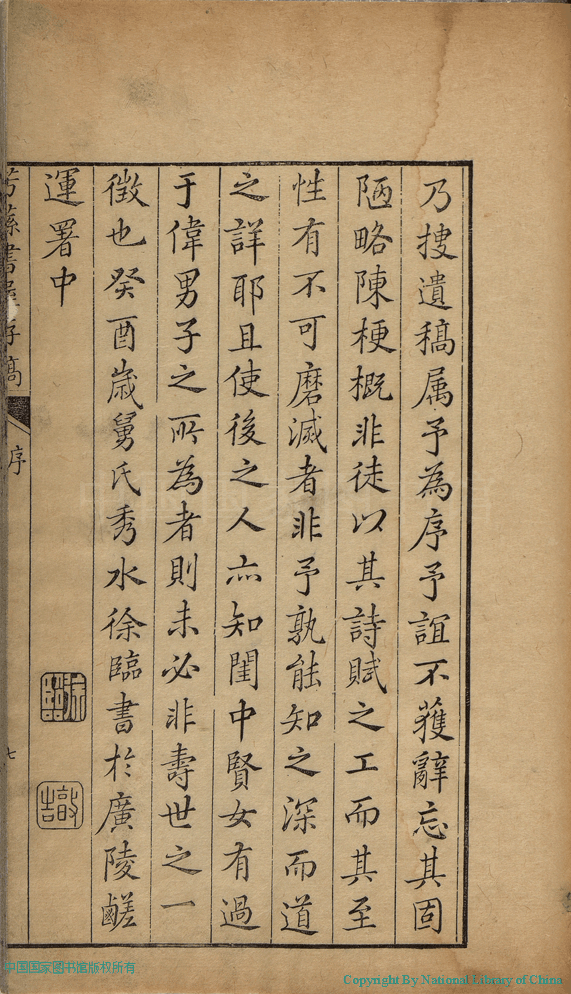 乃搜遺稿属予為序予誼不获辭忘其固
陋略陳梗概非徒以其詩賦之工而其至
性有不可磨滅者非予孰能知之深而道
之詳耶且使後之人亦知閨中賢女有過
于偉男子之所為者則未必非壽世之一
徵也癸酉歲舅氏秀水徐臨書於廣陵鹾
運署中
序
七
中国国家图书馆版权所有
Copyright By National Library of China